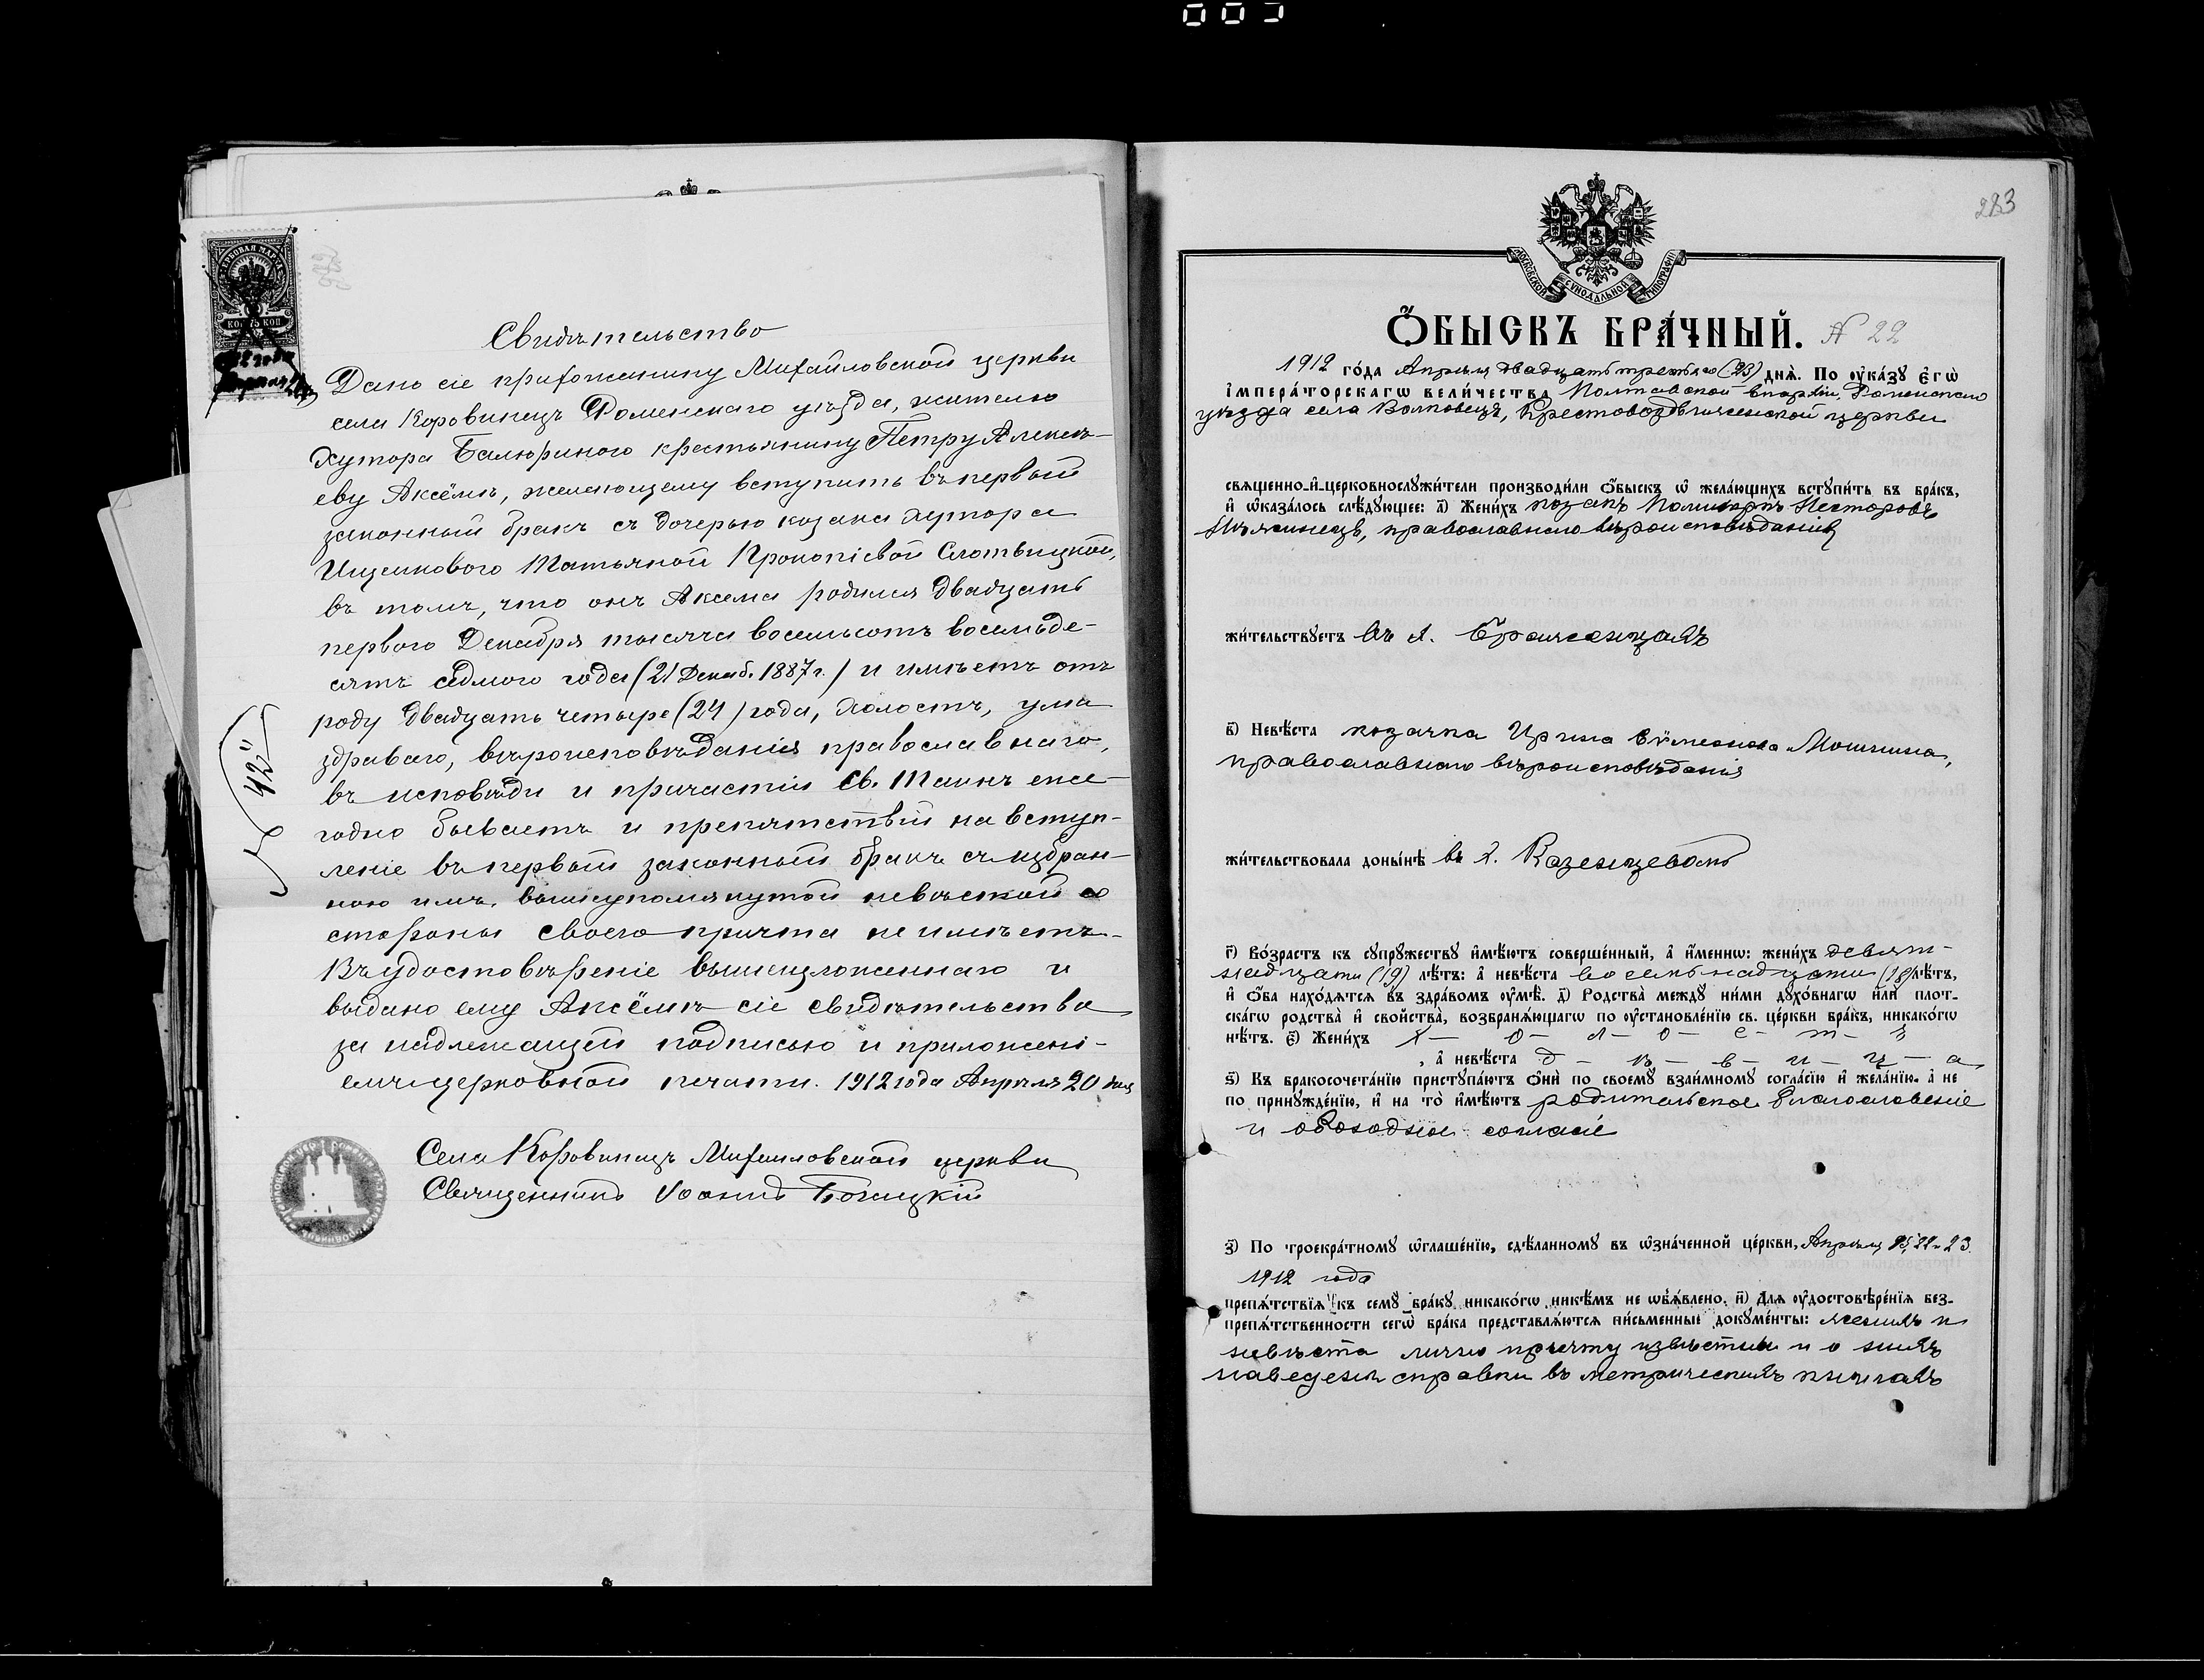 Свидѣтельство
Дано сіе прихожанину Михайловской церкви
села Коровинецъ Роменскаго уѣзда, жителю
хутора крестьянину Петру Алексѣ-
еву Аксёмѣ, желающему вступить въ первый
законный бракъ съ дочерью козака хутора
Ищенкового Татьяной Прокопіевой Слотвицкой,
въ томъ, что онъ Аксема родился двадцать
перваго Декабря тысяча восемьсотъ восемьде-
сятъ седмого года (21 Декаб. 1887 г.) и имѣетъ отъ
роду двадцать четыре (24) года, холостъ, ума
здраваго, вѣроисповѣданія православнаго,
въ исповѣди и причастіи Св. Таинъ еже-
годно бываетъ и препятствій на вступ-
леніе въ первый законный бракъ съ избран-
ною имъ вышеупомянутой невѣстой со
стороны своего причта не имѣетъ.
Въ удостовѣреніе вышеизложеннаго и
выдано ему Аксёмѣ сіе свидѣтельство
за надлежащей подписью и приложені-
емъ церковной печати. 1912 года Апрѣля 20 дня
Села Коровинецъ Михайловской церкви
Священникъ Іоаннъ
"42"
КОП 75 КОП
283
МОСКОВСКОЙ СѴНОДАЛЬНОЙ ТИПОГРАФІИ
ОБЫСКЪ БРАЧНЫЙ. № 22
1912 года Апрѣля двадцать третьяго (23) дня. По указу Его
Императорскаго Величества Полтавской епархіи, Роменскаго
уѣзда села Волковецъ, Крестовоздвиженской церкви
священно-и-церковнослужители производили обыскъ о желающихъ вступить въ бракъ,
и оказалось слѣдующее: а) Женихъ козакъ Поликарпъ Несторовъ
православнаго вѣроисповѣданія
жительствуетъ въ х. Браженцахъ
в) Невѣста козачка Ирина Мошнина,
православнаго вѣроисповѣданія
жительствовала донынѣ въ х. Казенцевомъ
г) Возрастъ къ супружеству имѣютъ совершенный, а именно: женихъ девят-
надцати (19) лѣтъ: а невѣста восемьнадцати (18) лѣтъ,
и оба находятся въ здравомъ умѣ. д) Родства между ними духовнаго или плот-
скаго родства и свойства, возбраняющаго по установленію св. церкви бракъ, никакого
нѣтъ. е) Женихъ х — о — л — о — с — т — ъ
, а невѣста д — ѣ — в — и — ц — а
ѕ) Къ бракосочетанію приступаютъ они по своему взаимному согласію и желанію, а не
по принужденію, и на то имѣютъ родительское благословеніе
и обоюдное согласіе
з) По троекратному оглашенію, сдѣланному въ означенной церкви, Апрѣля 15, 22 и 23
1912 года
препятствія къ сему браку никакого никѣмъ не объявлено. и) Для удостовѣренія без-
препятственности сего брака представляются письменные документы: женихъ и
невѣста лично причту извѣстны и о нихъ
наведены справки въ метрическихъ книгахъ